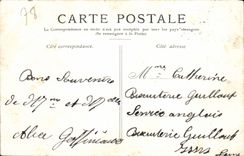 78
CARTE POSTALE
La Correspondance au recto n'est pas acceptée par tous les pays étrangers
(Se renseigner à la Poste)
Côté correspondance.
Côté adresse.
Bons Souvenirs
de Mme et Mr
Alice
Mme Catherine
Biscuiterie Guillout
Service anglais
Biscuiterie Guillout